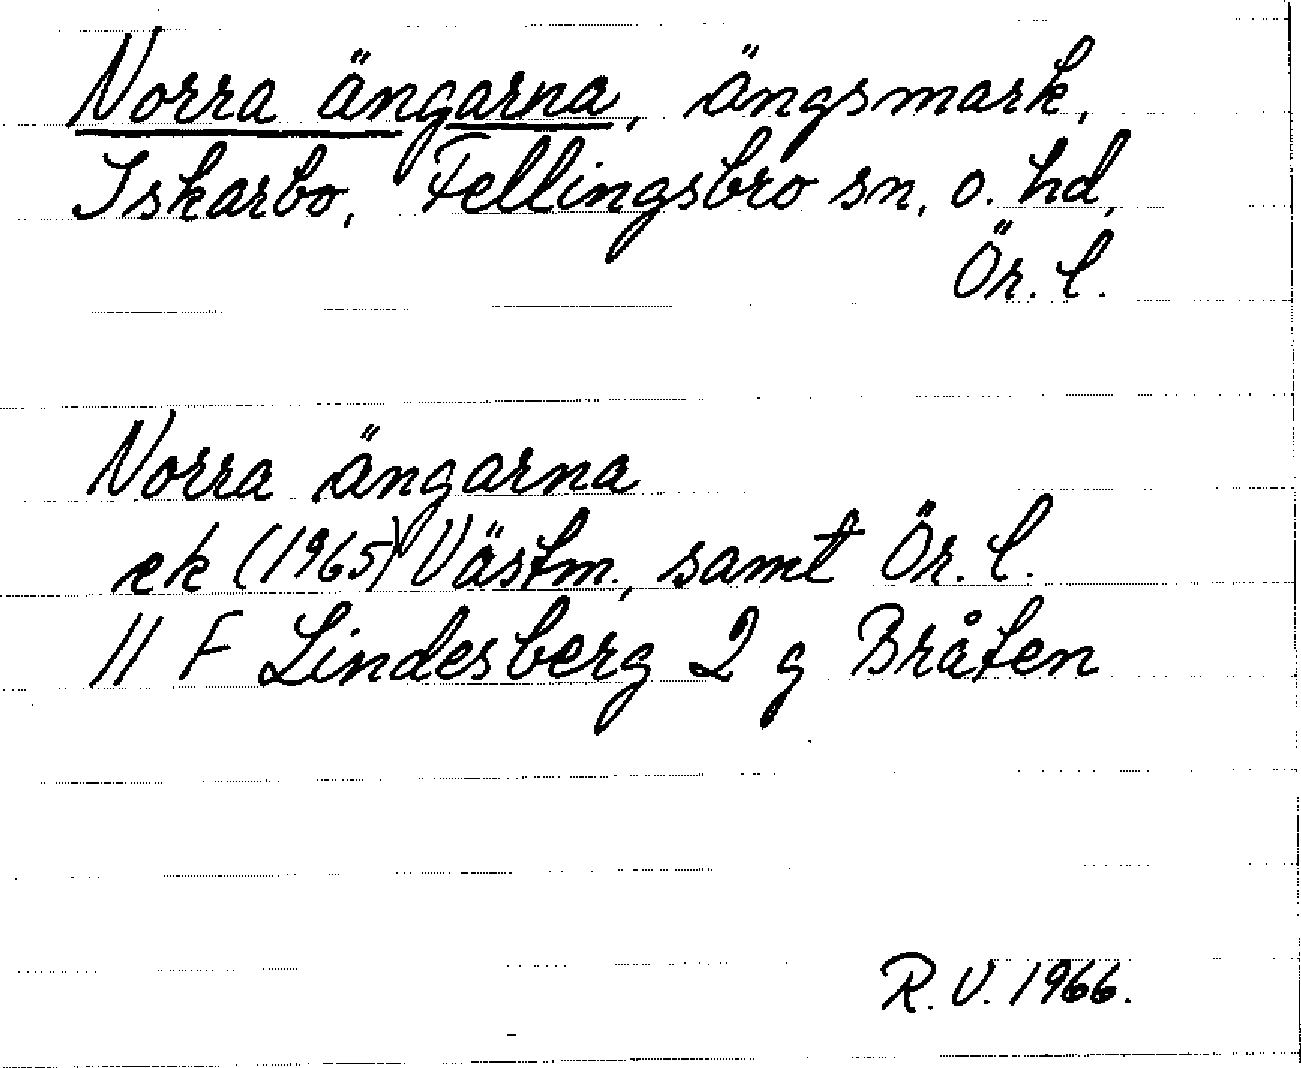 Norra ängarna, ängsmark,
Iskarbo, Fellingsbro sn. o. hd,
Ör. l.
Norra ängarna
ek (1965) Västm., samt Ör. l.
11 F Lindesberg 2 g Bråten
R. V. 1966.